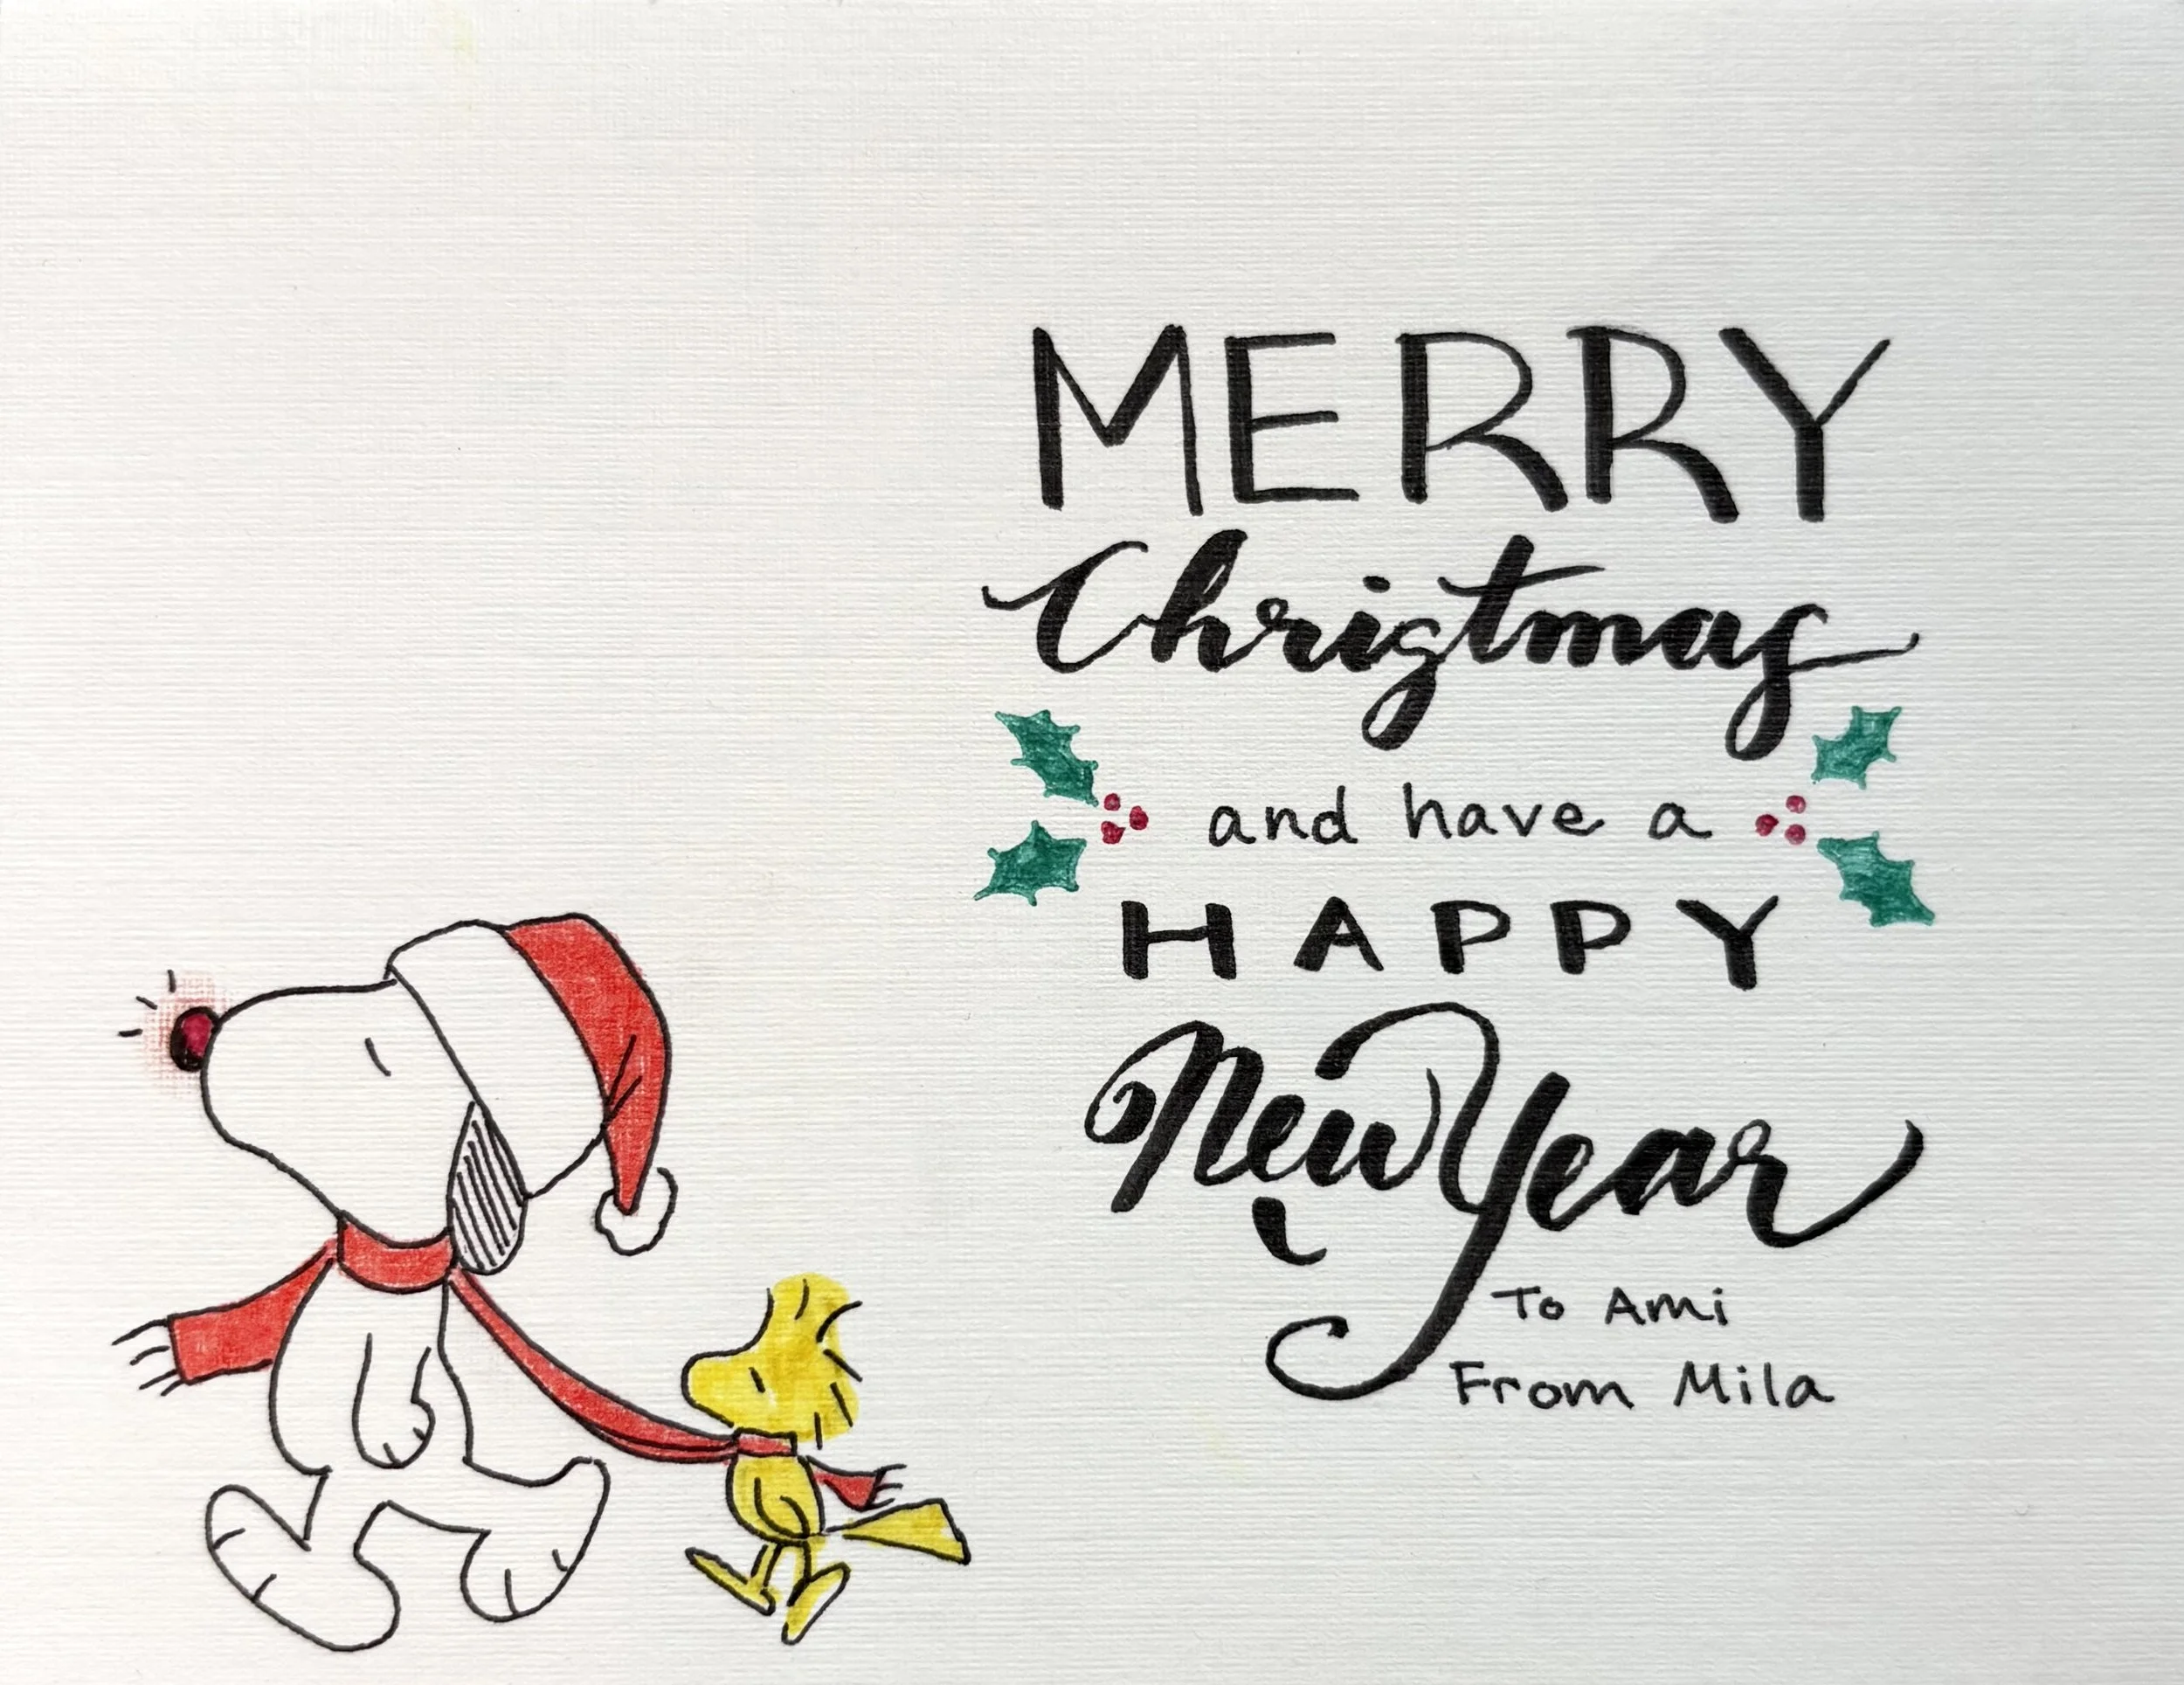 MERRY
Christmas
and have a
HAPPY
New Year
To Ami
From Mila